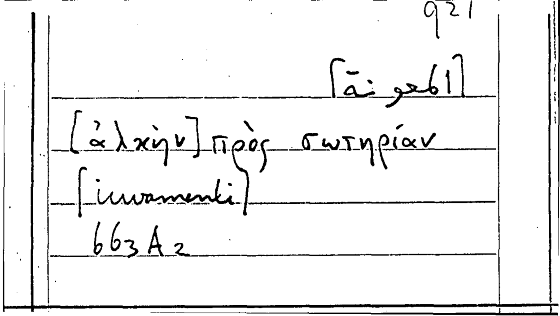 921
[ἀλκὴν] πρὸς σωτηρίαν
[iuvamenti]
663 A 2